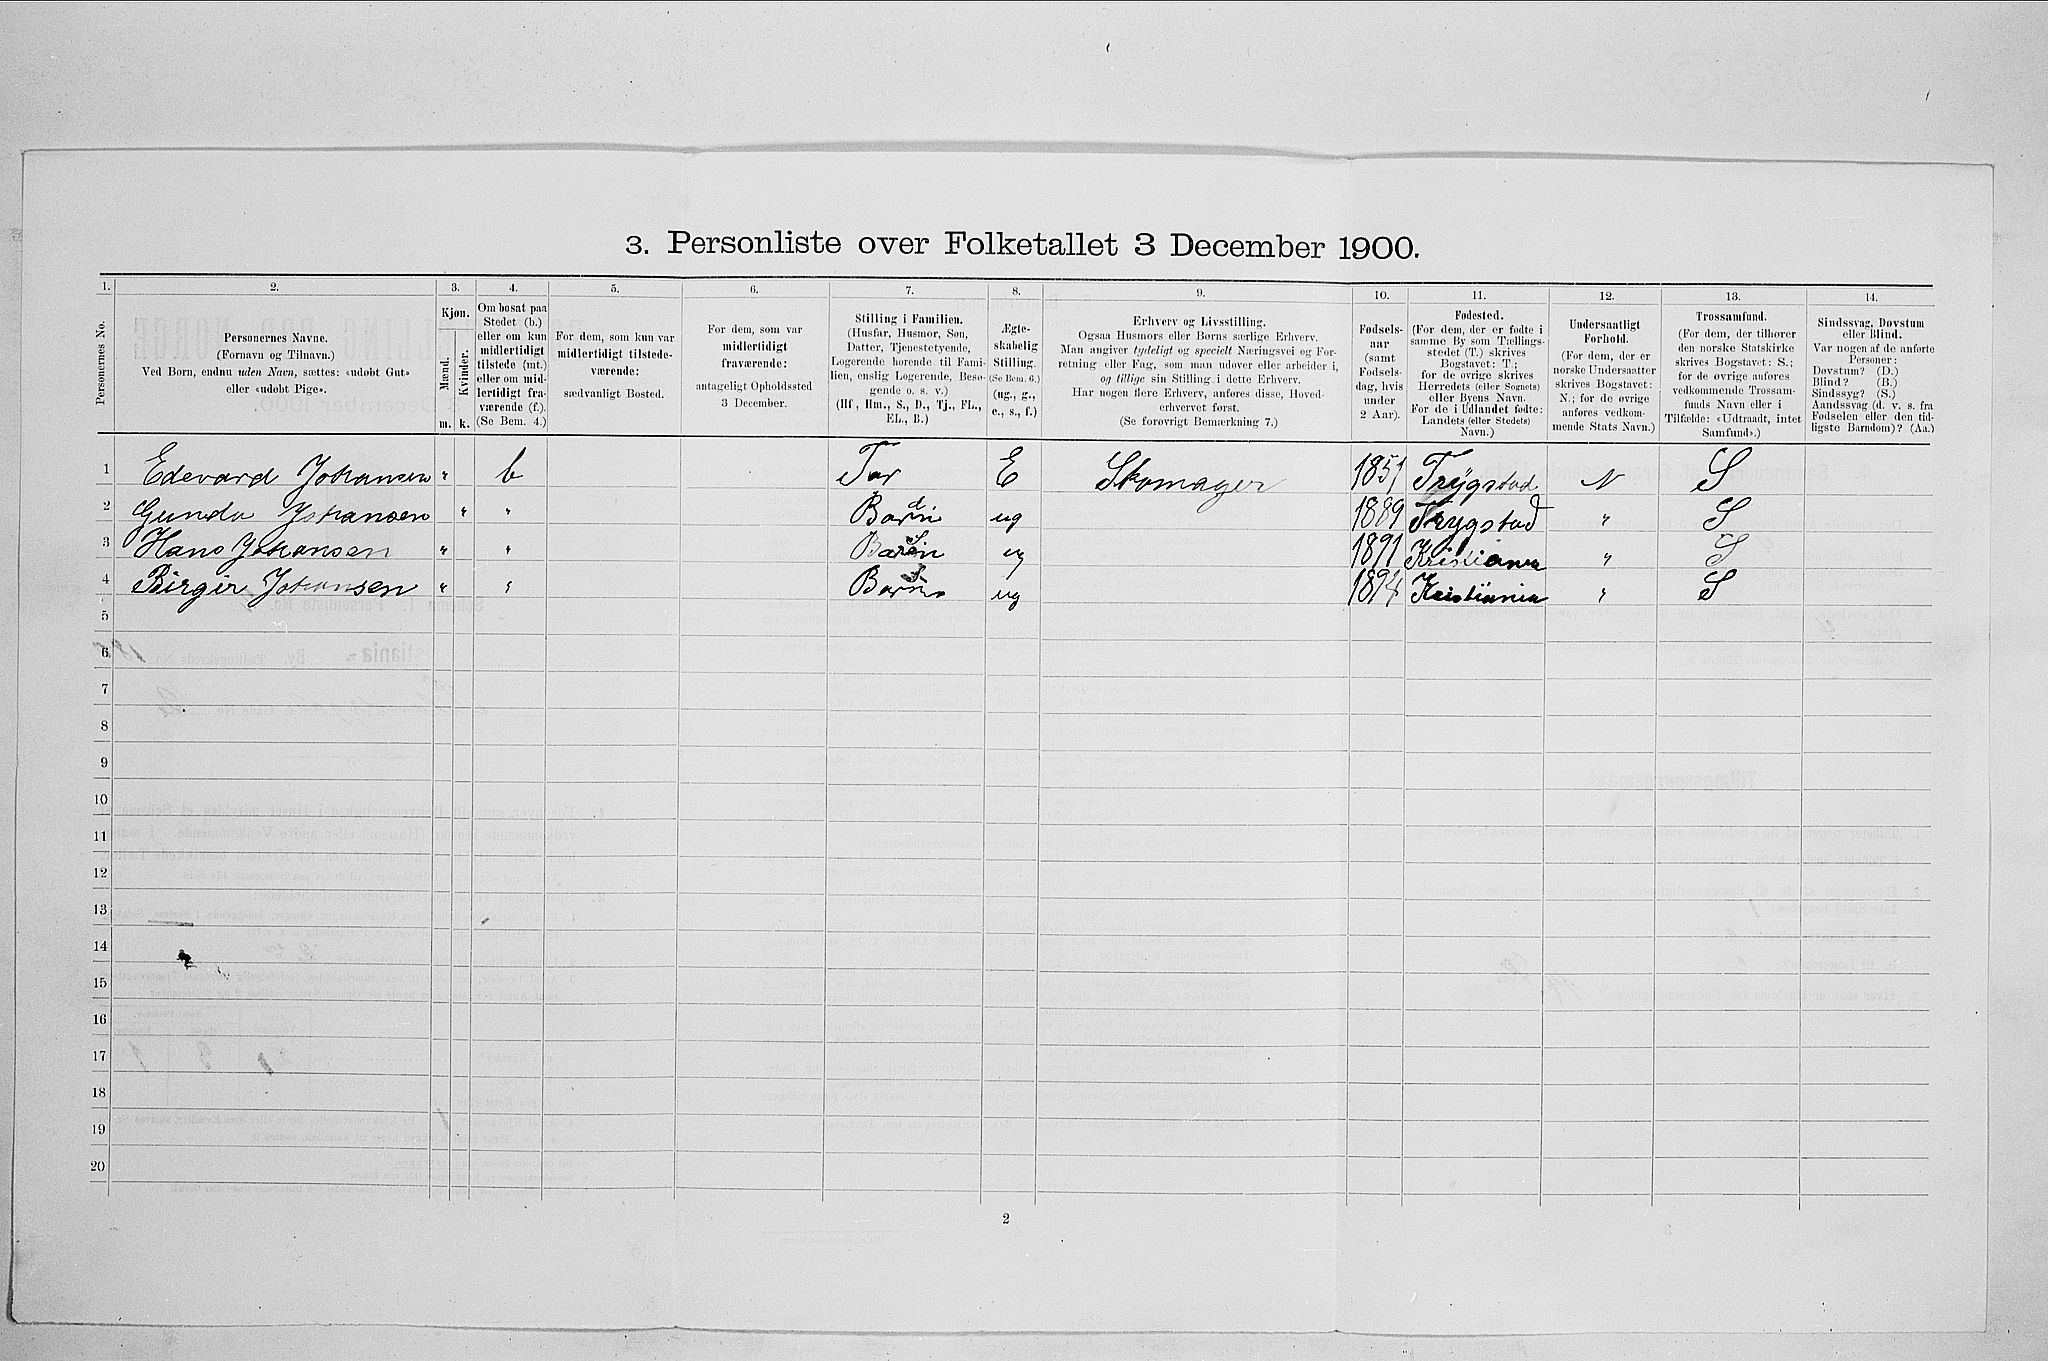 3. Personliste over Folketallet 3 December 1900.
1. 2. 3. 4. 5. 6. 7. 8. 9. 10. 11. 12. 13. 14.
Personernes No.
Personernes Navne.
(Fornavn og Tilnavn.)
Ved Børn, endnu uden Navn, sættes: «udøbt Gut»
eller «udøbt Pige».
Kjøn.
Mænd.
Kvinder.
m. k.
Om bosat paa
Stedet (b.)
eller om kun
midlertidigt
tilstede (mt.)
eller om mid-
lertidigt fra-
værende (f.).
(Se Bem. 4.)
For dem, som kun var
midlertidigt tilstede-
værende:
sædvanligt Bosted.
For dem, som var
midlertidigt
fraværende:
antageligt Opholdssted
3 December.
Stilling i Familien.
(Husfar, Husmor, Søn,
Datter, Tjenestetyende,
Logerende hørende til Fami-
lien, enslig Logerende, Besø-
gende o. s. v.)
(Hf, Hm., S., D., Tj., FL.,
EL., B.)
Ægte-
skabelig
Stilling.
(Se Bem. 6.)
(ug., g.,
e., s., f.)
Erhverv og Livsstilling.
Ogsaa Husmors eller Børns særlige Erhverv.
Man angiver tydeligt og specielt Næringsvei og For-
retning eller Fag, som man udøver eller arbeider i,
og tillige sin Stilling i dette Erhverv.
Har nogen flere Erhverv, anføres disse, Hoved-
erhvervet først.
(Se forøvrigt Bemærkning 7.)
Fødsels-
aar
(samt
Fødsels-
dag, hvis
under
2 Aar).
Fødested.
(For dem, der er fødte i
samme By som Tællings-
stedet (T.) skrives
Bogstavet: T.;
for de øvrige skrives
Herredets (eller Sognets)
eller Byens Navn.
For de i Udlandet fødte:
Landets (eller Stedets)
Navn.)
Undersaatligt
Forhold.
(For dem, der er
norske Undersaatter
skrives Bogstavet:
N.; for de øvrige
anføres vedkom-
mende Stats Navn.)
Trossamfund.
(For dem, der tilhører
den norske Statskirke
skrives Bogstavet: S.;
for de øvrige anføres
vedkommende Trossam-
funds Navn eller i
Tilfælde: «Udtraadt, intet
Samfund».)
Sindssvag, Døvstum
eller Blind.
Var nogen af de anførte
Personer:
Døvstum? (D.)
Blind? (B.)
Sindssyg? (S.)
Aandssvag (d. v. s. fra
Fødselen eller den tid-
ligste Barndom)? (Aa.)
1 Edevard Johansen " b Far E Skomager 1851 Trygstad N S
2 Gunda Johansen " " Barn d ug 1889 Trygstad " S
3 Hans Johansen " " Barn S ug 1891 Kristiania " S
4 Birgir Johansen " " Barn S ug 1894 Kristiania " S
5
6
7
8
9
10
11
12
13
14
15
16
17
18
19
20
2